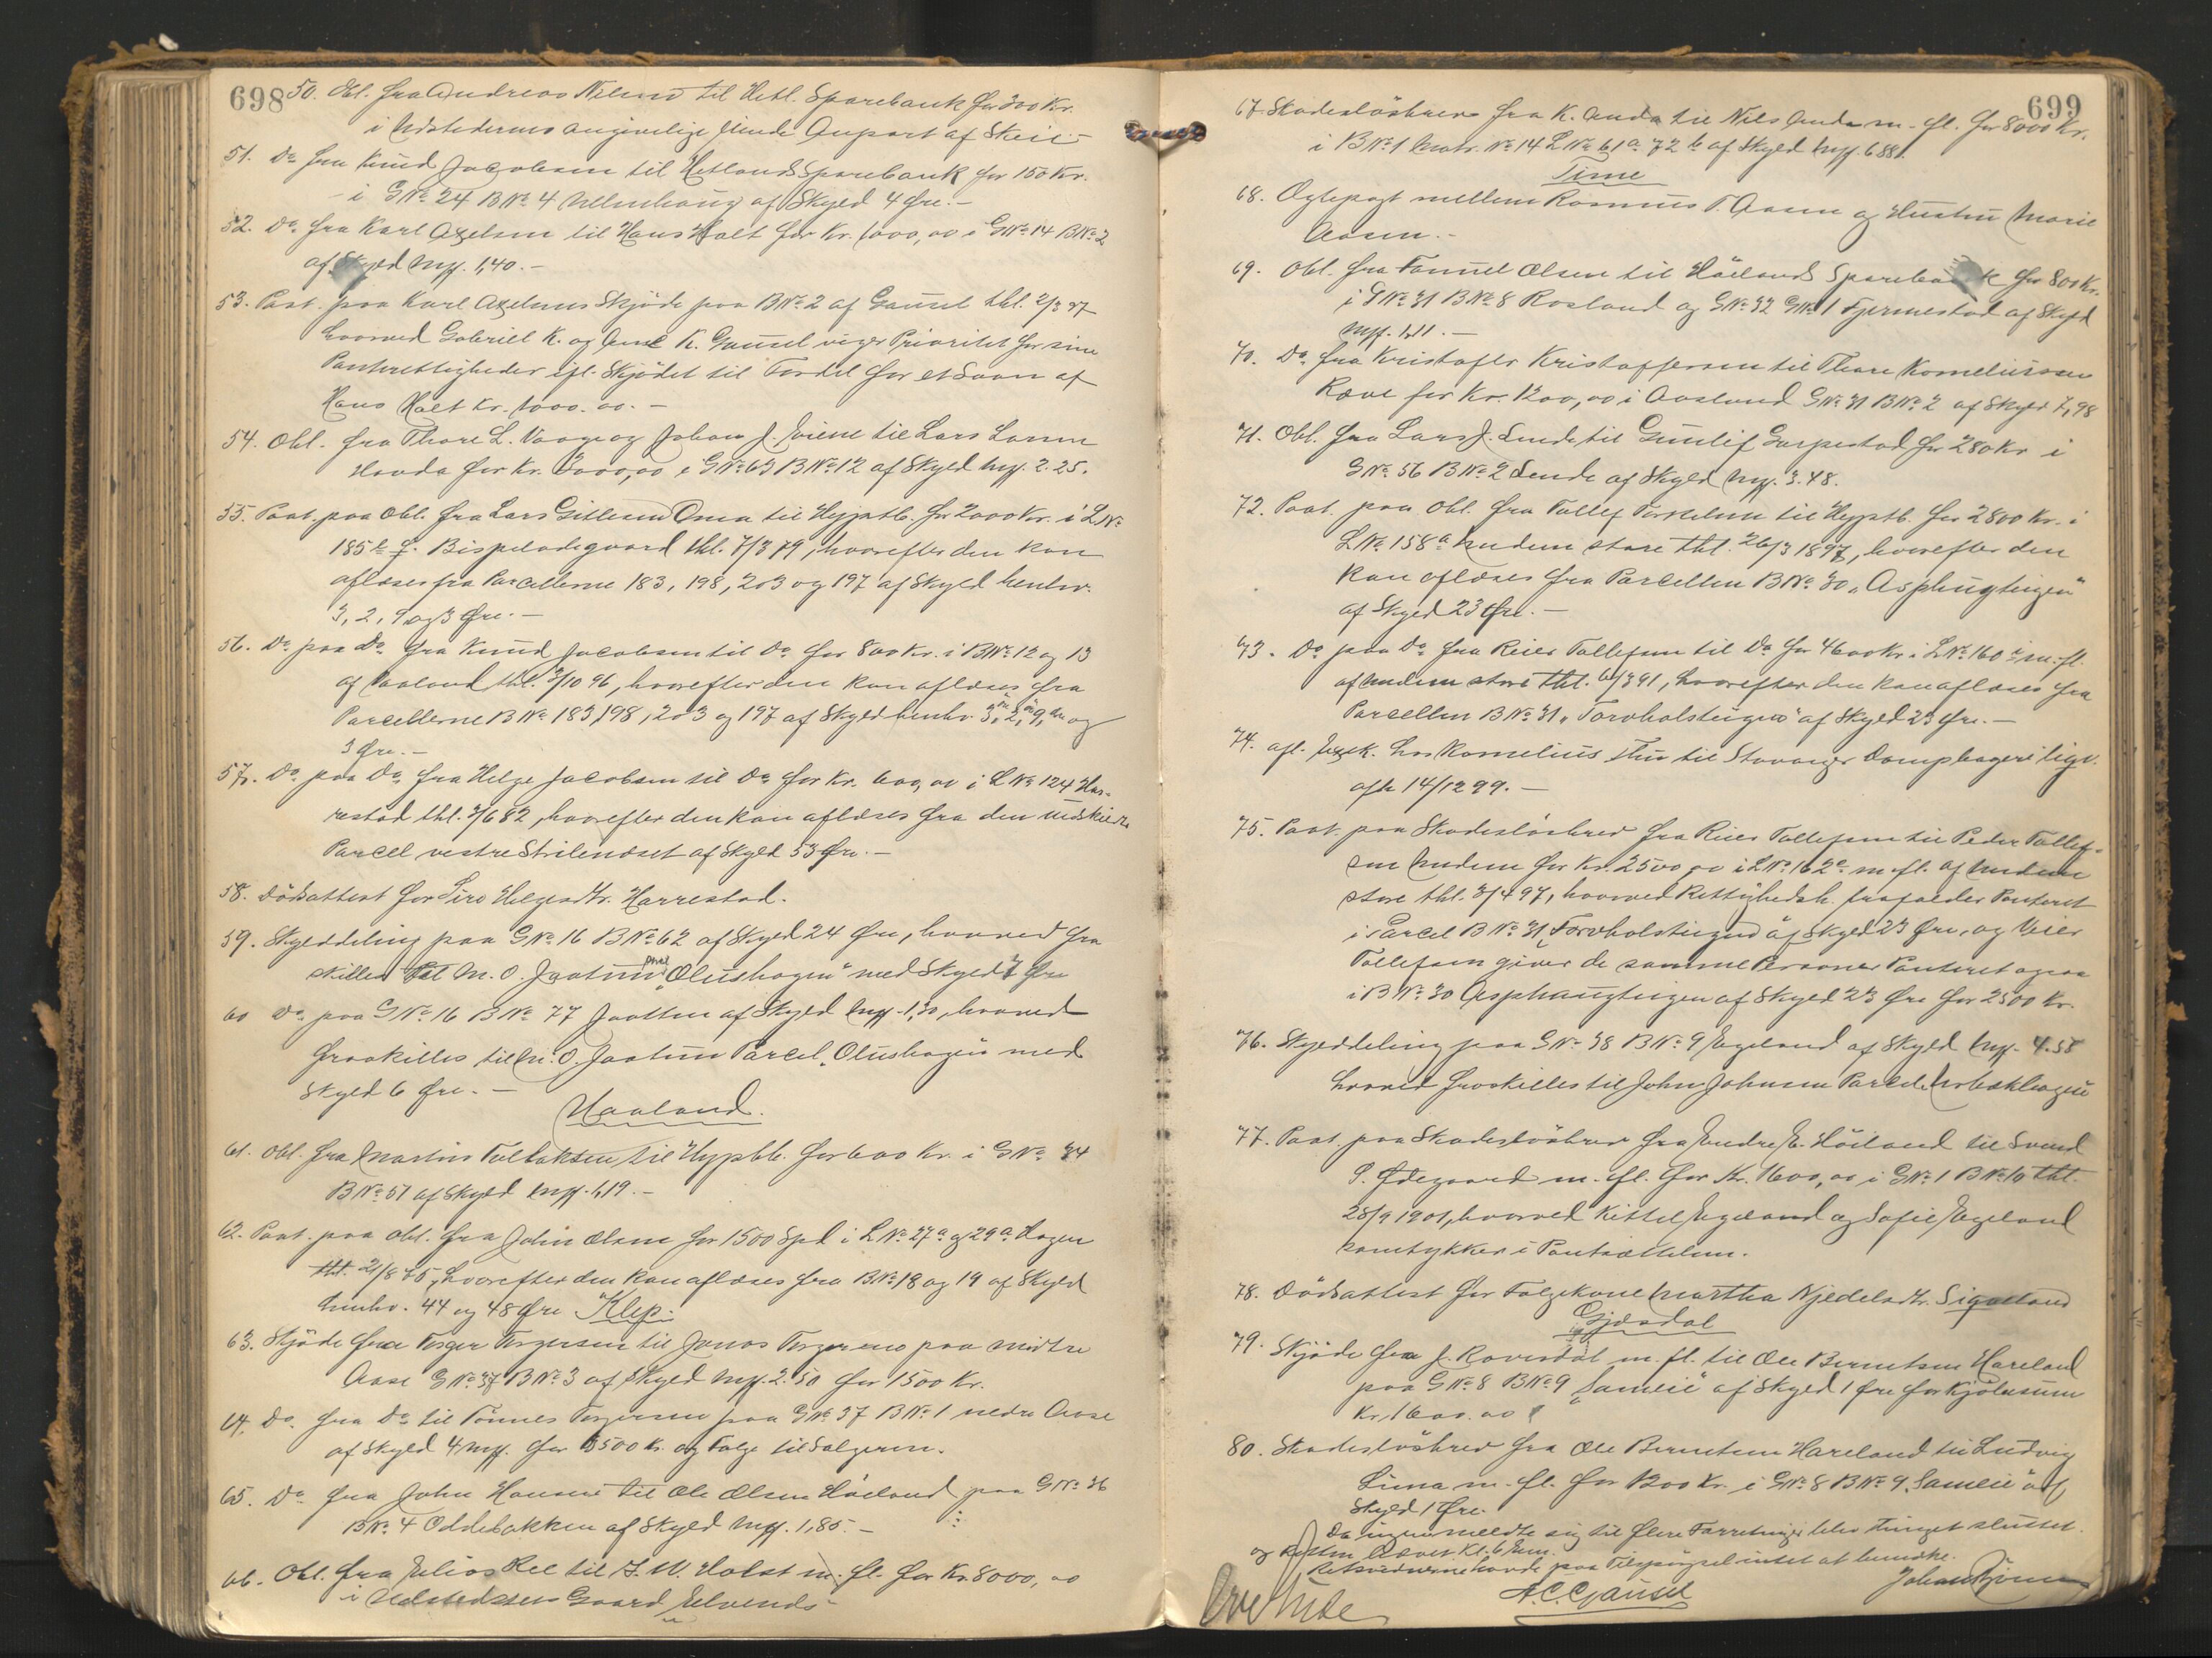 698
50. Obl. fra Andreas Nilsen til Hetl. Sparebank for 300 Kr.
i Udstederens angivelige Anpart af Skeie.-
51. Do fra Knud Jacobsen til Hetlands Sparebank for 150 Kr.
- i GNo 24 BNo 4 Ullenhaug af Skyld 4 Øre.-
52. Do fra Karl Axelsen til Hans Holt for Kr. 1000,00 i GNo 14 BNo 2
af Skyld Mrk. 1,40.-
53. Paat. paa Karl Axelsens Skjöde paa BNo 2 af Gausel thl. 2/3 97
hvorved Gabriel K. og Arne K. Gausel viger Prioritet for sine
Panterettigheder efl. Skjödet til Fordel for et Laan af
Hans Holt Kr. 1000.00.-
54. Obl. fra Thore L. Vaage og Johan J. til Lars Larsen
Haada for Kr. 3000,00 i GNo 63 BNo 12 af Skyld Mrk. 2.25.
55. Paat. paa Obl. fra Lars Gitlesen Oma til Hyptb. for 2000 Kr. i LNo
185 b f. Bispeladegaard thl. 7/3 79, hvorefter den kan
aflæses fra Parcellerne 183, 198, 203 og 197 af Skyld henhv.
3, 2, 9 og 3 Øre.-
56. Do paa Do fra Knud Jacobsen til Do for 800 Kr. i BNo 12 og 13
af thl. 3/10 96, hvorefter den kan aflæses fra
Parcellerne BNo 183, 198, 203 og 197 af Skyld henhv. 3, 2, 9, og
3 Øre.-
57. Do paa Do fra Helge Jacobsen til Do for Kr. 600,00 i LNo 124 Har-
restad thl. 3/6 82, hvorefter den kan aflæses fra den udskildte
Parcel vestre Strilenæset af Skyld 53 Øre.-
58. Dödsattest for Siro Helgesdtr. Harrestad.
59. Skylddeling paa GNo 16 BNo 62 af Skyld 24 Øre, hvorved fra
skilles til M. O. Jaatun "Olushagen" med Skyld 7 Øre
60 Do paa GNo 16 BNo 77 Jaatten af Skyld Mrk. 1,30, hvorved
fraskilles til M. O. Jaatun Parcel "Olushagen" med
Skyld 6 Øre.-
Haaland.
61. Obl. fra Martin Tollaksen til Hyptb. for 600 Kr. i GNo 34
BNo 51 af Skyld Mrk. 1,19.-
62. Paat. paa Obl. fra John Olsen for 1500 Spd i LNo 27a og 29a Hagen
thl. 21/8 75, hvorefter den kan aflæses fra BNo 18 og 19 af Skyld
henhv. 44 og 48 Øre. Klep.
63. Skjöde fra Torger Torgersen til Jonas Torgersen paa midtre
Aase GNo 37 BNo 3 af Skyld Mrk. 2.50 for 1500 Kr.
64. Do fra Do til Tönnes Torgersen paa GNo 37 BNo 1 nedre Aase
af Skyld 4 Mrk. for 3500 Kr. og Folge til Sælgeren.
65. Do fra John Hansen til Ole Olsen Höiland paa GNo 36
BNo 4 Oddebakken af Skyld Mrk. 1,85.-
66. Obl. fra Elias Ree til J. W. Holst m. fl. for Kr. 8000,00
i Udstedersens Gaard
699
67. Skadeslösbrev fra K. Anda til Nils Anda m. fl. for 8000 Kr.
i BNo 1 Matr. No 14 LNo 61a 72b af Skyld Mrk. 6.88.
Time
68. Ægtepagt mellem Rasmus T. Aasen og Hustru Marie
Aasen.-
69. Obl. fra Samuel Olsen til Höilands Sparebank for 800 Kr.
i GNo 31 BNo 8 Rosland og GNo 32 GNo 1 Fjermestad af Skyld
Mrk. 1,11.-
70. Do fra Kristofer Kristoffersen til Thore Korneliussen
Ræve for Kr. 1200,00 i Aasland GNo 31 BNo 2 af Skyld 7,98
71. Obl. fra Lars J. Lende til Gunlif Garpestad for 280 Kr i
GNo 56 BNo 2 Lende af Skyld Mrk. 3.48.
72. Paat. paa Obl. fra Tollef Torkelsen til Hyptb. for 2800 Kr. i
LNo 158a Undem store thl. 26/3 1897, hvorefter den
kan aflæses fra Parcellen BNo 30 "Asphaugteigen"
af Skyld 23 Øre.-
73. Do paa Do fra Reier Tollefsen til Do for 4600 Kr. i LNo 160a m. fl.
af Undem store thl. 6/3 91, hvorefter den kan aflæses fra
Parcellen BNo 31 "Torvholsteigen" af Skyld 23 Øre.-
74. Afl. Exek. hos Kornelius Thu til Stavanger Dampbageri
afh 14/12 99.-
75. Paat. paa Skadeslösbrev fra Reier Tollefsen til Peder Tollef-
sen Undem for Kr. 2500,00 i LNo 162a m. fl. af Undem
store thl. 3/4 97, hvorved Rettighedsh. frafalder Panteret
i Parcel BNo 31 "Torvholsteigen" af Skyld 23 Øre, og Reier
Tollefsen giver de samme Personer Panteret ogsaa
i BNo 30 Asphaugteigen af Skyld 23 Øre for 2500 Kr.
76. Skylddeling paa GNo 38 BNo 9 Egeland af Skyld Mrk. 4.58
hvorved fraskilles til John Johnsen Parcel
77. Paat. paa Skadeslösbrev fra Endre E. Höiland til Svend
S. Ödegaard m. fl. for Kr. 1600,00 i GNo 1 BNo 10 thl.
28/9 1901, hvorved Kittel Egeland og Sofie Egeland
samtykker i Pantsættelsen.
78. Dödsattest for Folgekone Martha Njædelsdtr. Sigvaland
Gjæsdal
79. Skjöde fra J. Ravndal m. fl. til Ole Berentsen Hareland
paa GNo 8 BNo 9 "Sameie" af Skyld 1 Øre for Kjöbesum
Kr. 1600.00
80. Skadeslösbrev fra Ole Berentsen Hareland til Ludvig
Lima m. fl. for 1200 Kr. i GNo 8 BNo 9 "Sameie" af
Skyld 1 Øre.
Da ingen meldte sig til flere Forretninger blev Thinget sluttet.
og Retten hævet Kl. 6 Em.
Retsvidnerne havde paa Tilspørgsel intet at bemærke.
A. C. Gausel
Johan